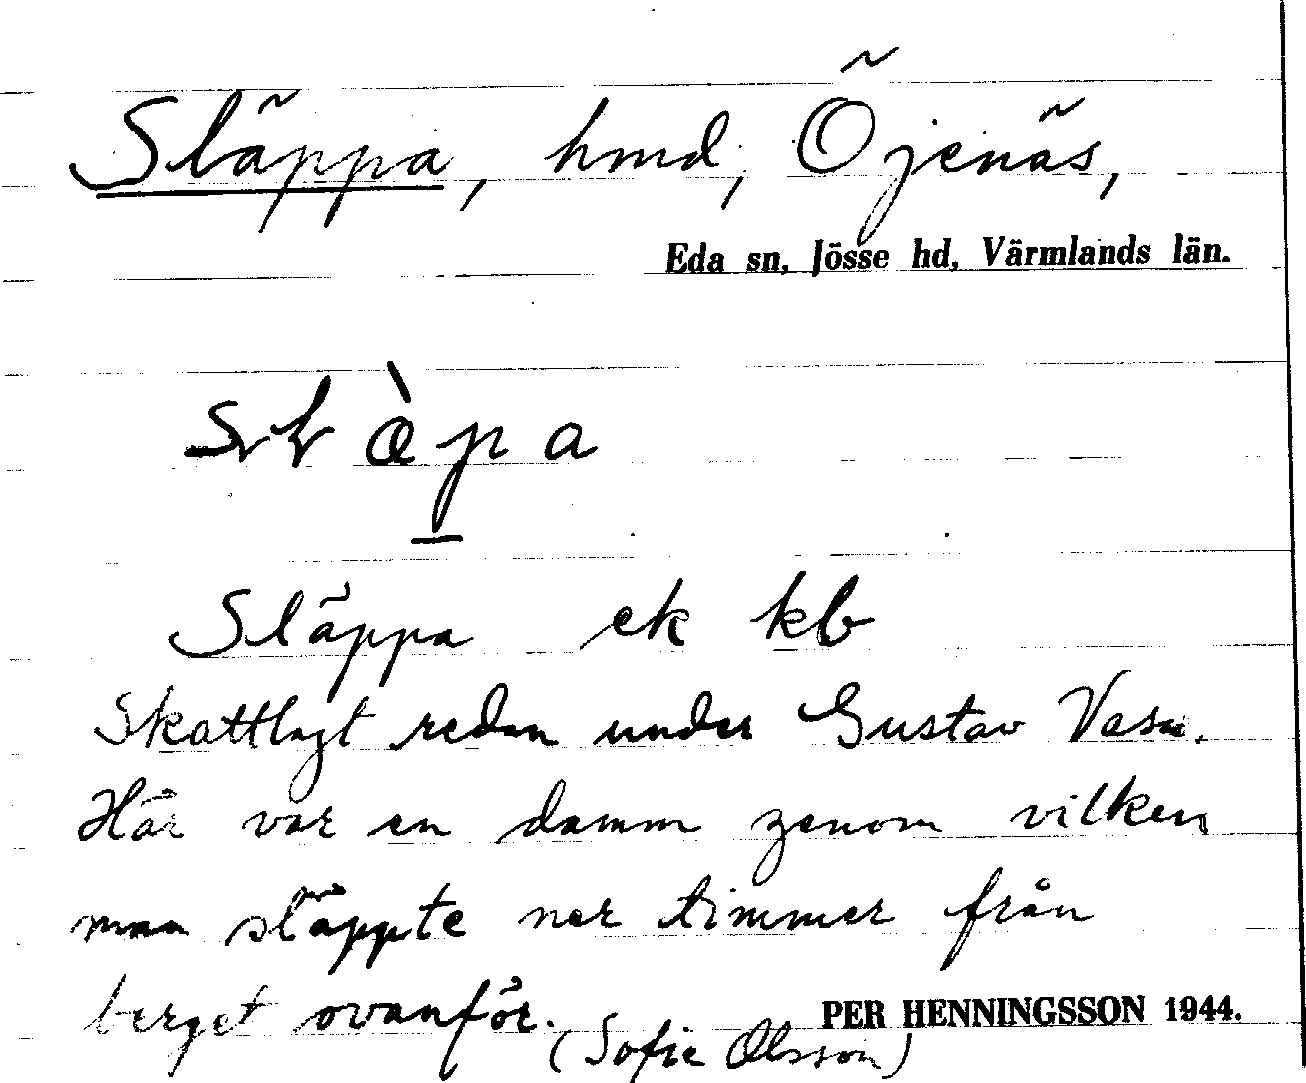 Släppa, hmd, Öjenäs,
Eda sn, Jösse hd, Värmlands län.
Släppa ek kb
Skattlagt redan under Gustav Vasa.
Här var en damm genom vilken
man släppte ner timmer från
berget ovanför.
PER HENNINGSSON 1944.
(Sofie Olsson)